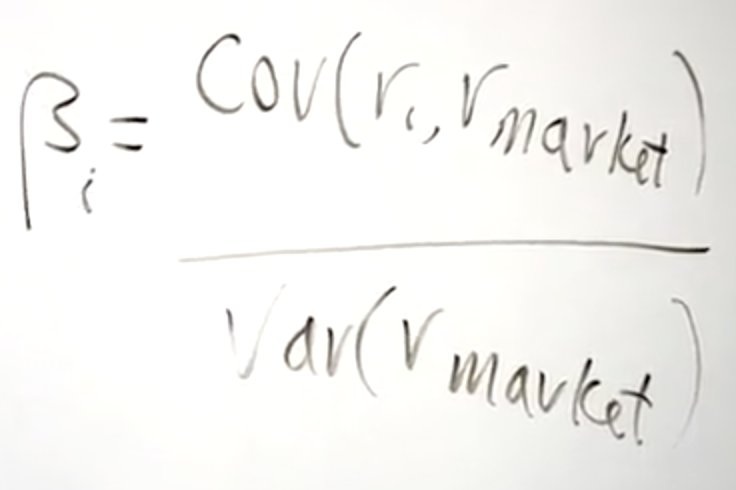 βᵢ = Cov(rᵢ, r_market)
Var(r_market)